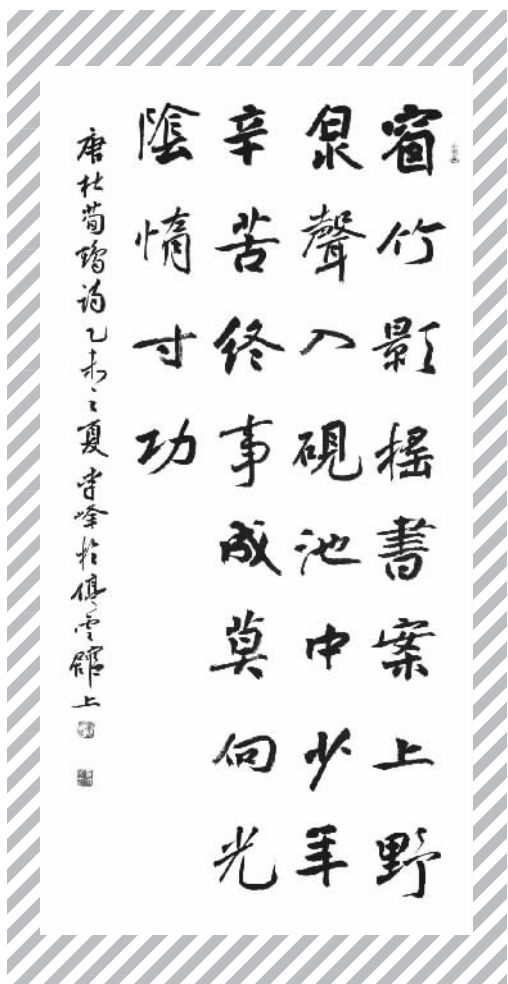 窗竹影摇書案上野
泉聲入硯池中少年
辛苦终事成莫向光
陰惰寸功
唐杜荀鶴詩乙未之夏李峰於停雲館上